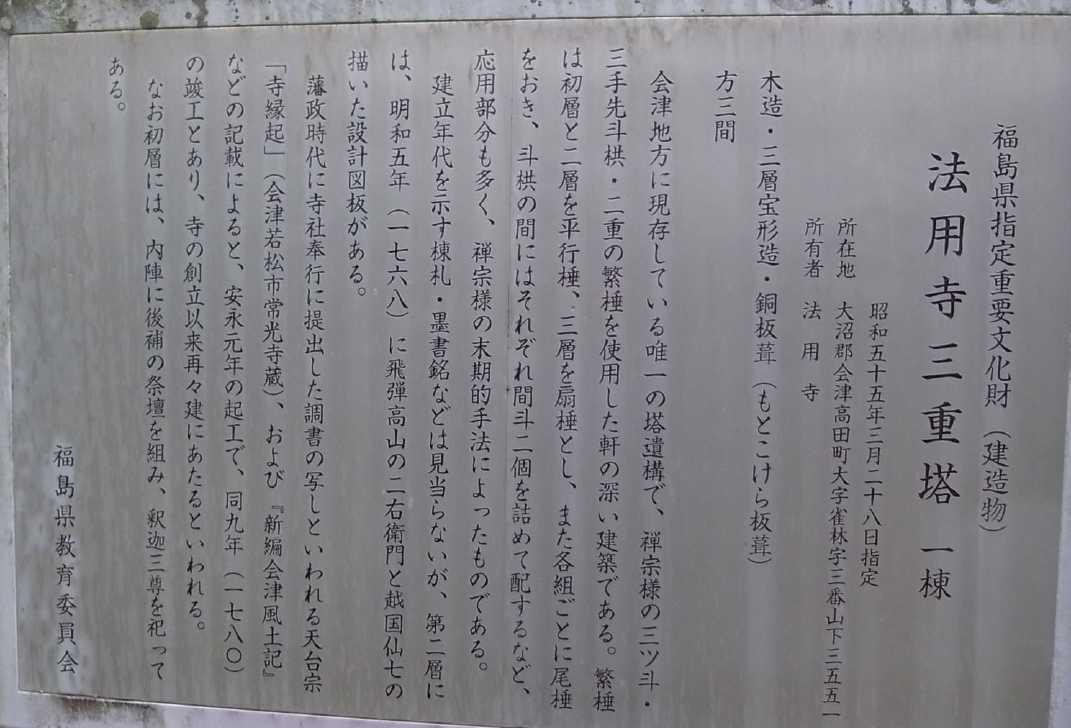 福島県指定重要文化財（建造物）
法用寺三重塔 一棟
昭和五十五年三月二十八日指定
所在地 大沼郡会津高田町大字雀林字三番山下三五五一
所有者 法用寺
木造・三層宝形造・銅板葺（もとこけら板葺）
方三間
会津地方に現存している唯一の塔遺構で、禅宗様の三ツ斗・
三手先斗栱・二重の繁棰を使用した軒の深い建築である。繁棰
は初層と二層を平行棰、三層を扇棰とし、また各組ごとに尾棰
をおき、斗栱の間にはそれぞれ間斗二個を詰めて配するなど、
応用部分も多く、禅宗様の末期的手法によったものである。
建立年代を示す棟札・墨書銘などは見当らないが、第二層に
は、明和五年（一七六八）に飛弾高山の二右衛門と越国仙七の
描いた設計図板がある。
藩政時代に寺社奉行に提出した調書の写しといわれる天台宗
「寺縁起」（会津若松市常光寺蔵）、および『新編会津風土記』
などの記載によると、安永元年の起工で、同九年（一七八〇）
の竣工とあり、寺の創立以来再々建にあたるといわれる。
なお初層には、内陣に後補の祭壇を組み、釈迦三尊を祀って
ある。
福島県教育委員会